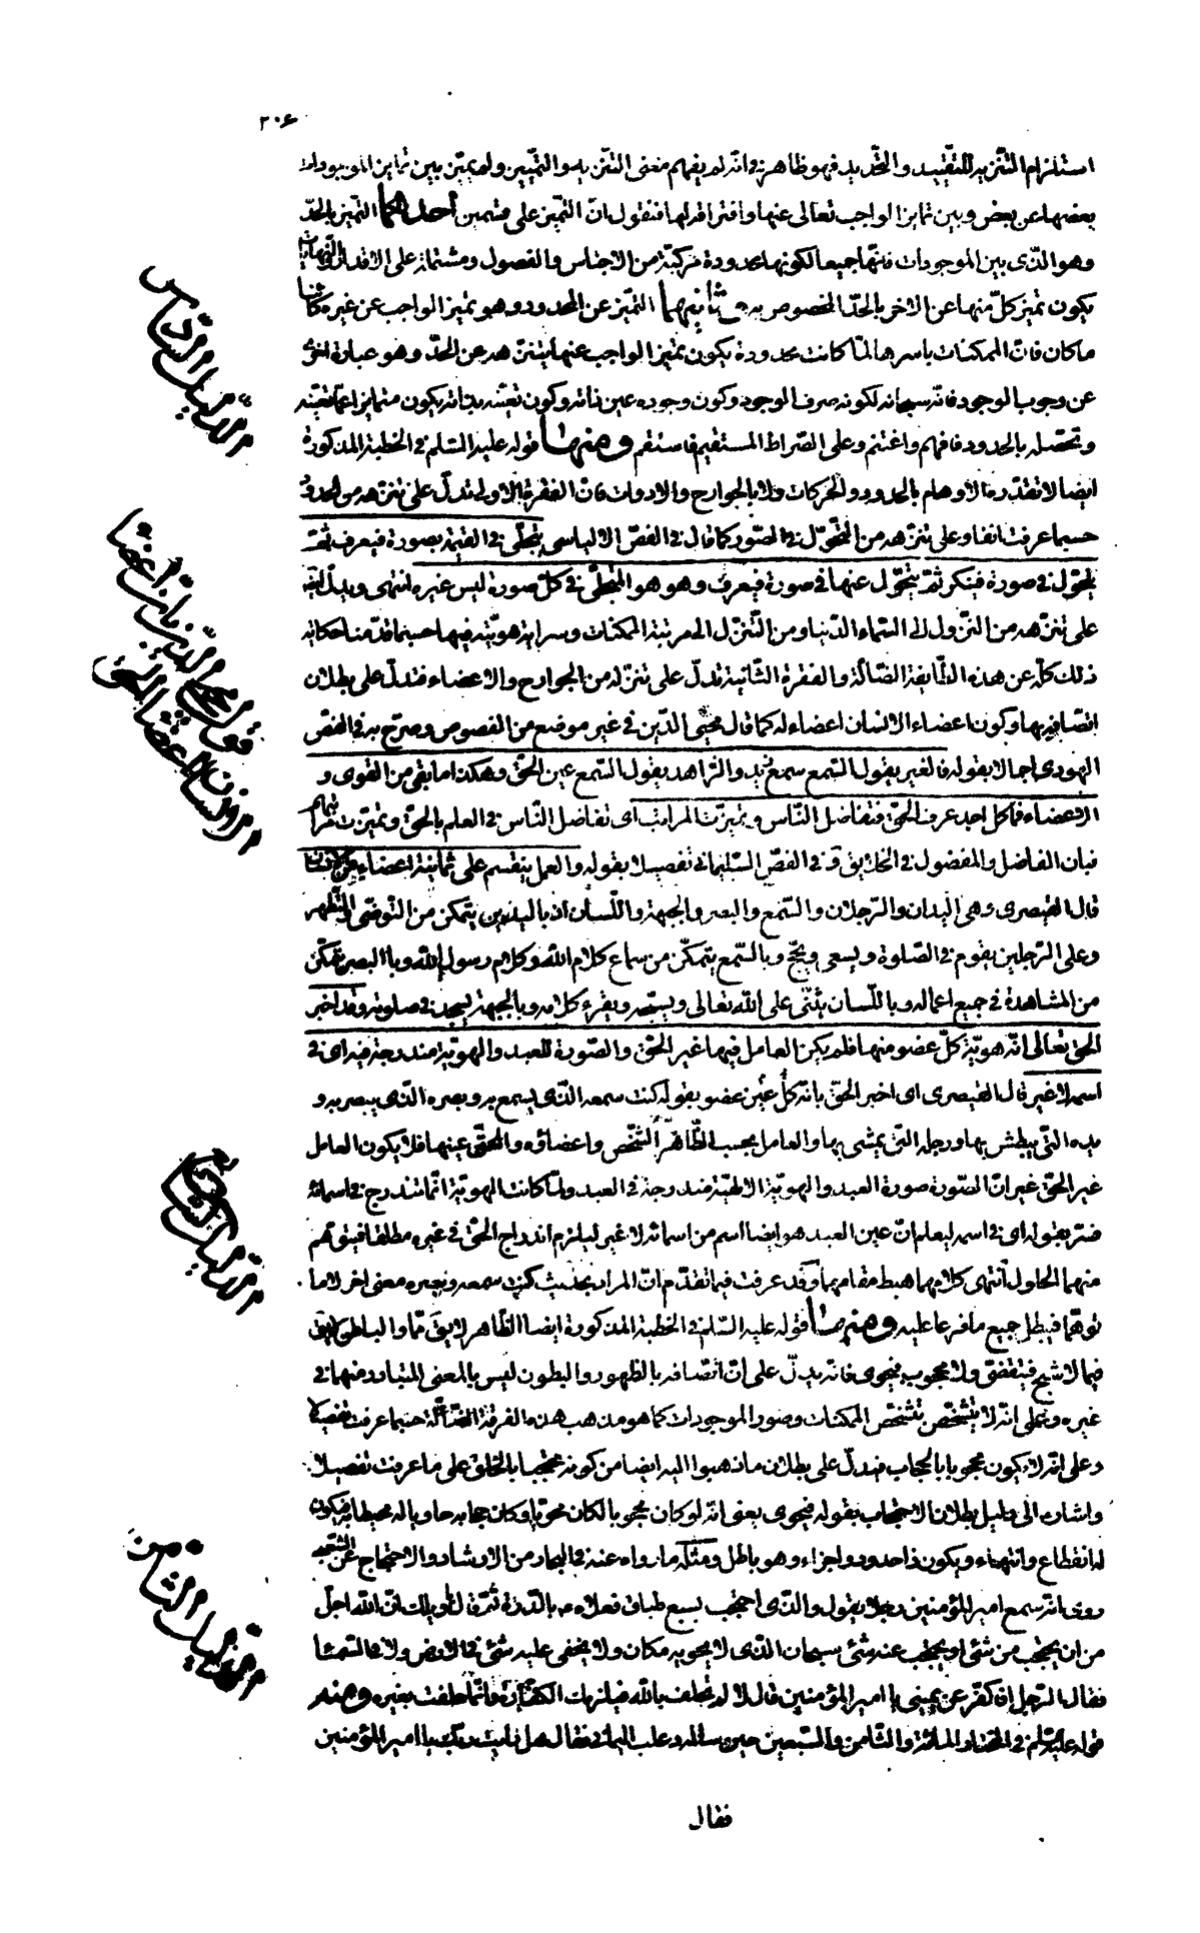 ٢٠۶
استلزام التّنزيه للتّقييد والتّحديد فهو ظاهر في انّه لم يفهم معنى التنزيه والتّميّز ولم يميّز بين تمايز الموجودات
بعضها عن بعض وبين تمايز الواجب تعالى عنها وافتراقه لها فنقول انّ التّميّز على قسمين أحدهما التّميّز بالحدّ
وهو الّذي بين الموجودات فانّها جميعا لكونها محدودة مركّبة من الاجناس والفصول ومشتملة على الاقدار والنّهايات
يكون تميّز كلّ منها عن الاخر بالحدّ المخصوص به وثانيهما التّميّز عن المحدود وهو تميّز الواجب عن غيره كائنا
ما كان فانّ الممكنات باسرها لمّا كانت محدودة يكون تميّز الواجب عنها بتنزّهه عن الحدّ وهو عبارة اخرى
عن وجوب الوجود فانّه سبحانه لكونه صرف الوجود وكون وجوده عين ذاته وكون تعيّنه بذاته يكون متمايزا عمّا تعيّنه
وتحصّله بالحدود فافهم واغتنم وعلى الصّراط المستقيم فاستقم ومنها قوله عليه السّلام في الخطبة المذكورة
ايضا لا تقدّره الاوهام بالحدود والحركات ولا بالجوارح والادوات فانّ الفقرة الاولى تدلّ على تنزّهه من الحدود
حسبما عرفت انفا وعلى تنزّهه من التّحوّل في الصّور كما قال في الفصّ الالياسى يتجلّى في القيمة بصورة فيعرف ثمّ
يتحوّل في صورة فينكر ثمّ يتحوّل عنها في صورة فيعرف وهو هو المتجلّى في كلّ صورة ليس غيره انتهى ويدلّ ايضا
على تنزّهه من النزول الى السّماء الدّنيا ومن التّنزّل الى مرتبة الممكنات وسراية هويّته فيها حسبما قدّمنا حكاية
ذلك كلّه عن هذه الطّايفة الضّالّة والفقرة الثّانية تدلّ على تنزّهه من الجوارح والاعضاء فتدلّ على بطلان
اتّصافه بها وكون اعضاء الانسان اعضاء له كما قال محيى الدّين في غير موضع من الفصوص وصرّح به في الفصّ
الهودى اجمالا بقوله فالغير يقول السّمع سمع زيد والزاهد يقول السّمع عين الحقّ وهكذا ما بقى من القوى و
الاعضاء فما كلّ احد عرف الحقّ فتفاضل النّاس وتميّزت المراتب اى تفاضل النّاس في العلم بالحقّ وتميّزت مراتبهم
فبان الفاضل والمفضول في الخلايق وفي الفصّ السّليمانى تفصيلا بقوله والعمل ينقسم على ثمانية اعضاء من الانسان
قال القيصرى وهى اليدان والرّجلان والسّمع والبصر والجبهة واللّسان اذ باليدين يتمكّن من التوضّى والتّطهّر
وعلى الرّجلين يقوم في الصّلوة ويسعى ويحجّ وبالسّمع يتمكّن من سماع كلام اللّه وكلام رسول اللّه وبالبصر يتمكّن
من المشاهدة في جميع اعماله وباللّسان يثنّى على اللّه تعالى ويسبّحه ويقرء كلامه وبالجبهة يسجد في صلوته وقد اخبر
الحقّ تعالى انّه هويّة كلّ عضو منها فلم يكن العامل فيها غير الحقّ والصّورة للعبد والهويّة مندرجة فيه اى في
اسمه لا غير قال القيصرى اى اخبر الحقّ بانّه كلّ عين عضو بقوله كنت سمعه الّذى يسمع به وبصره الّذى يبصر به و
يده الّتي يبطش بها ورجله الّتي يمشى بها والعامل بحسب الظّاهر الشّخص واعضاؤه والحقّ عينها فلا يكون العامل
غير الحقّ غير انّ الصّورة صورة العبد والهويّة الالهيّة مندرجة في العبد ولمّا كانت الهويّة انّما تندرج في اسمائه
فسّر بقوله اى في اسمه ليعلم انّ عين العبد هو ايضا اسم من اسمائه لا غير ليلزم اندراج الحقّ في غيره مطلقا فيتوهّم
منهما الحلول انتهى كلامهما هبط مقامهما وقد عرفت فيما تقدّم انّ المراد بحديث كنت سمعه وبصره معنى اخر لا ما
توهّما فبطل جميع ما فرعا عليه ومنها قوله عليه السّلام في الخطبة المذكورة ايضا الظّاهر لا يقال ممّا والباطن لا يقال
فيما لا شبح فيتقضّى ولا محجوب فيحوى فانّه يدلّ على انّ اتّصافه بالظهور والبطون ليس بالمعنى المتبادر منهما في
غيره وعلى انّه لا يتشخّص بتشخّص الممكنات وصور الموجودات كما هو مذهب هذه الفرقة الضّالّة حسبما عرفت تفصيلا
وعلى انّه لا يكون محجوبا بالحجاب فيدلّ على بطلان ما ذهبوا اليه ايضا من كونه محتجبا بالخلق على ما عرفت تفصيلا
واشار الى دليل بطلان الاحتجاب بقوله فيحوى يعنى انّه لو كان محجوبا لكان محويّا وكان حجابه حاويا له محيطا به فيكون
له انقطاع وانتهاء ويكون ذا حدود واجزاء وهو باطل ومثله ما رواه عنه في البحار من الارشاد والاحتجاج عن الشّعبى
روى انّه سمع امير المؤمنين رجلا يقول والّذى احتجب بسبع طباق فعلاه بالدّرّة ثمّ قال له ويلك انّ اللّه اجلّ
من ان يحتجب من شئ او يحتجب عنه شئ سبحان الّذى لا يحويه مكان ولا يخفى عليه شئ في الارض ولا في السّماء
فقال الرّجل افاكفّر عن يمينى يا امير المؤمنين قال لا لم تحلف باللّه فيلزمك الكفّارة وانّما حلفت بغيره ومنها
قوله عليه السّلام في المختار المائة والثّامن والسّبعين حين سئله دعلب اليمانى فقال هل رايت ربّك يا امير المؤمنين
فقال
الدّليل السّادس
قول محيى الدّين بانّ اعضاء
الانسان اعضاء الحقّ
الدّليل السّابع
الدّليل الثّامن